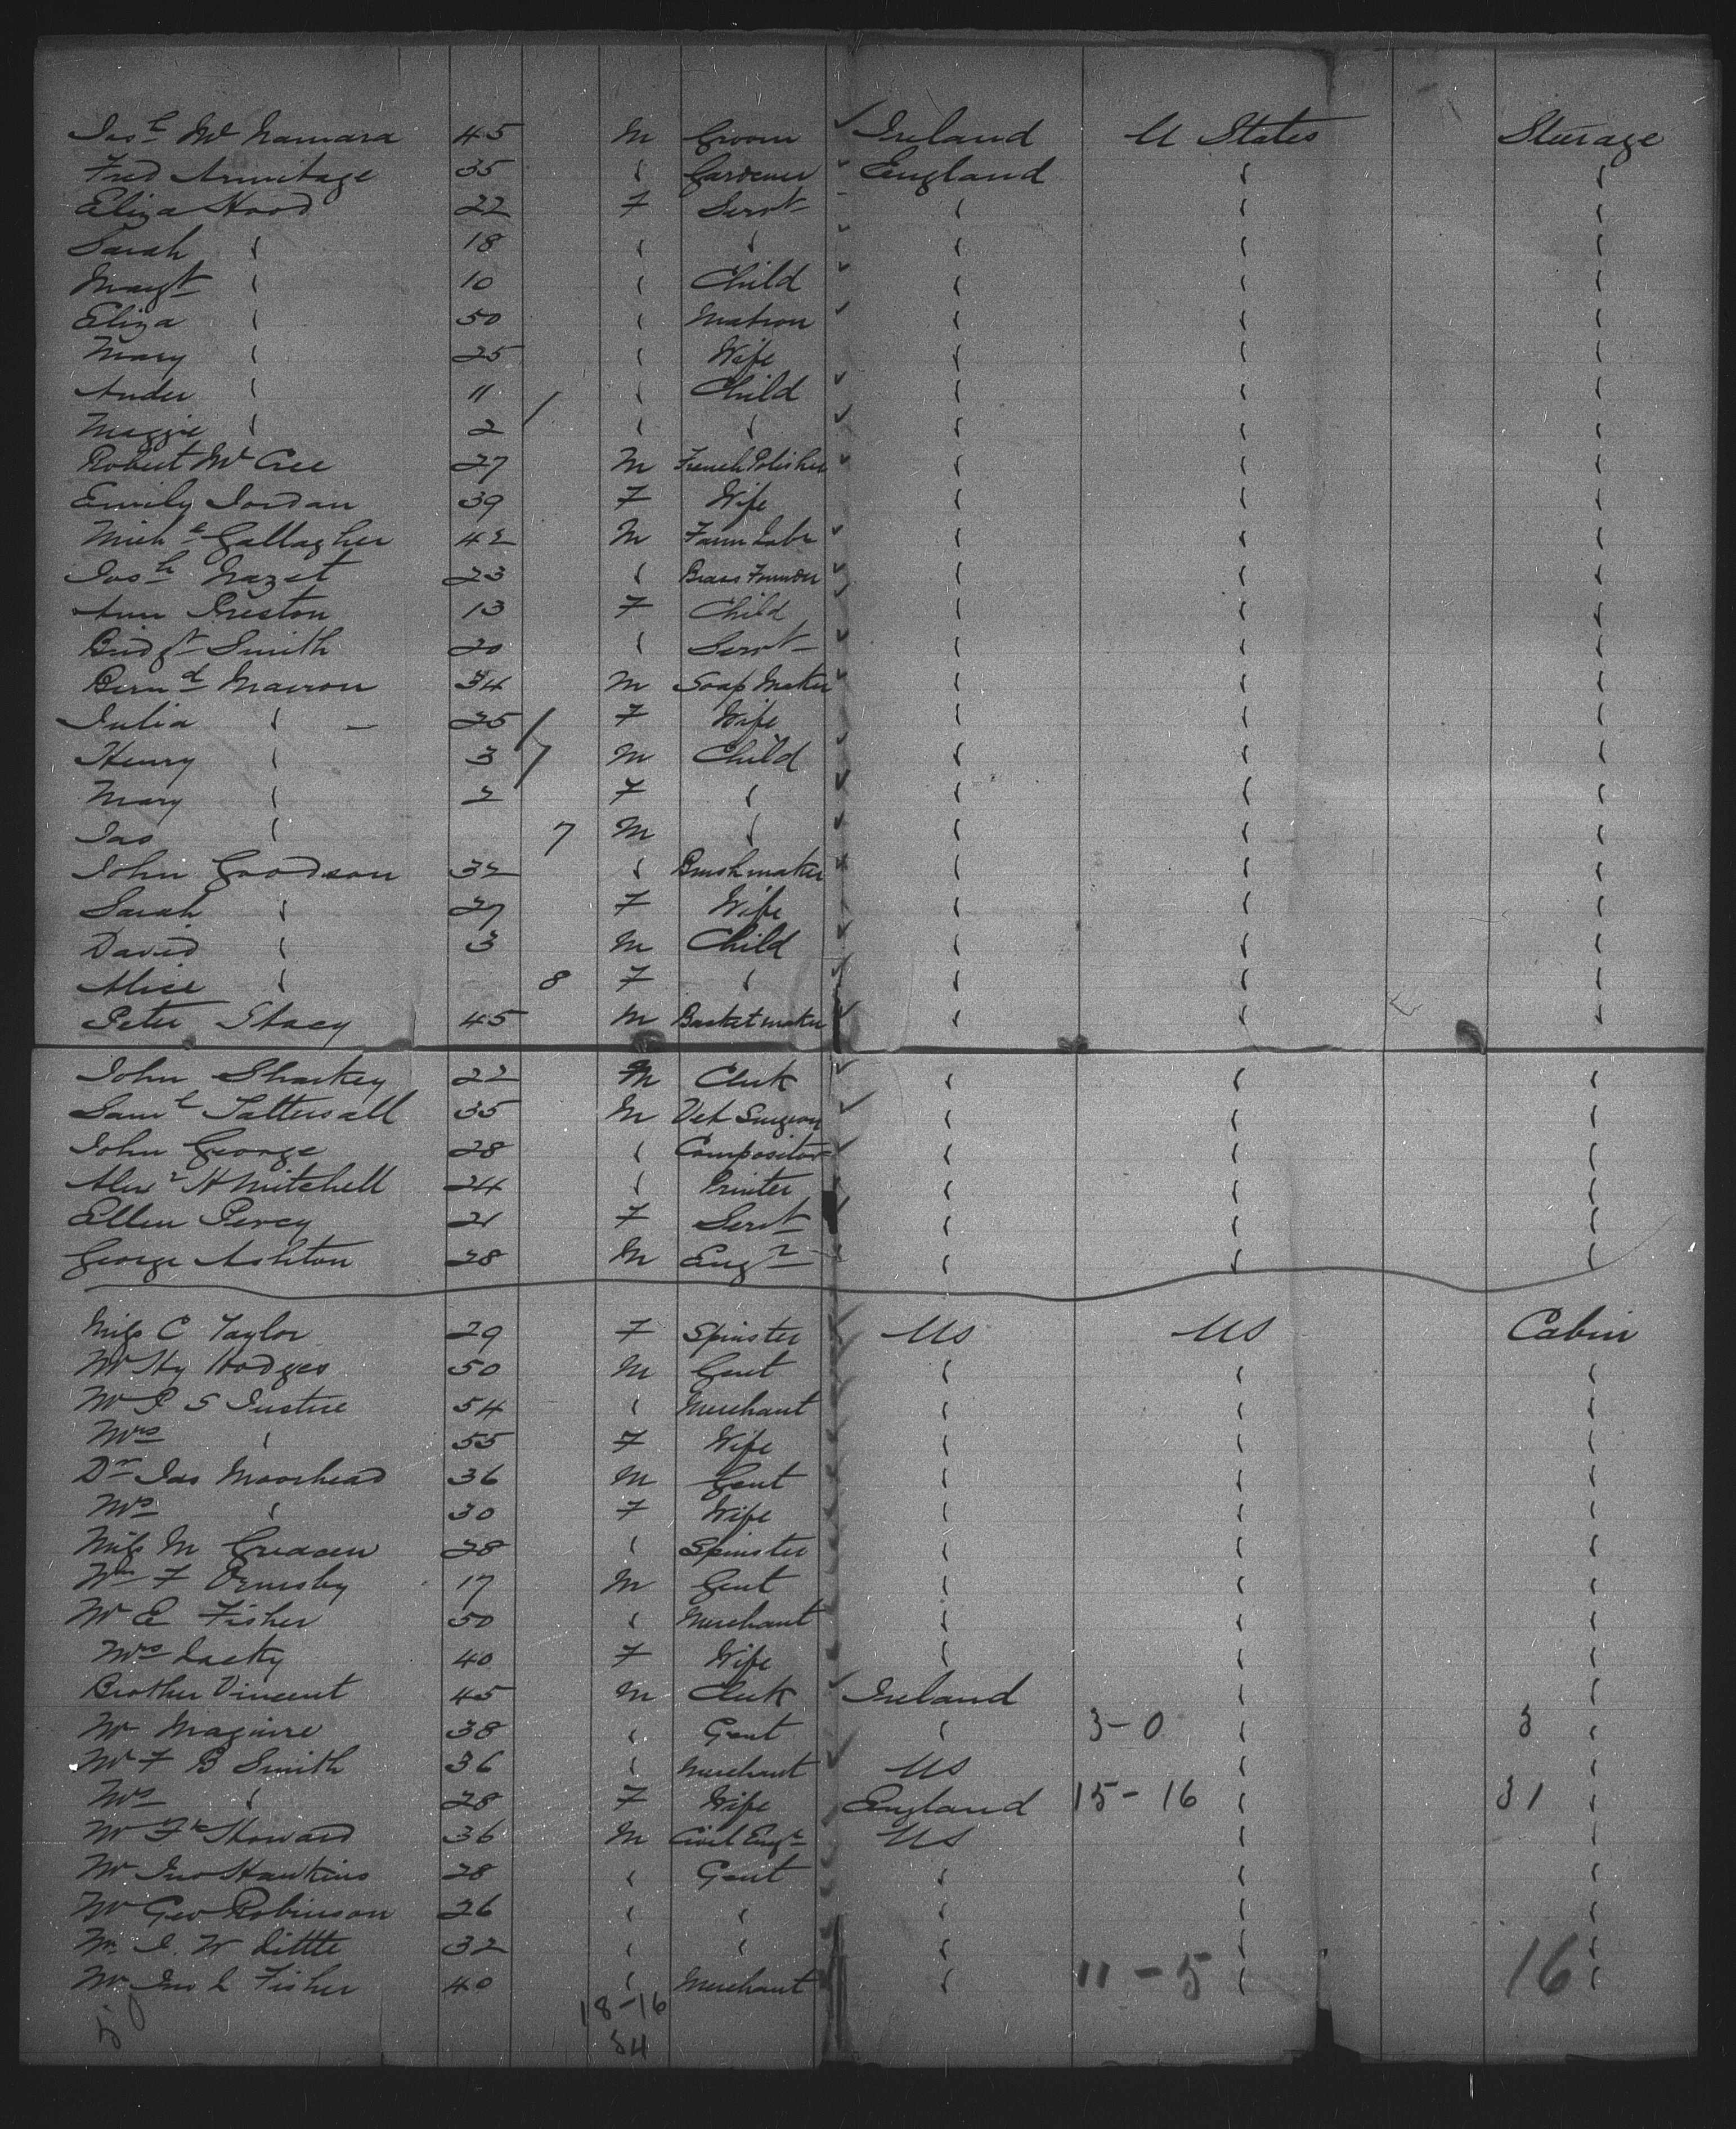 Josh McNamara 45 M Groom Ireland U States Steerage
Fred Armitage 35 " Gardener England " "
Eliza Hood 22 F Servt " " "
Sarah " 18 " " " " "
Margt " 10 " Child " " "
Eliza " 50 " Matron " " "
Mary " 25 " Wife " " "
" 11 " Child " " "
Maggie " 2 " " " " "
Robert McCree 27 M French Polisher " " "
Emily Jordan 39 F Wife " " "
Michl Gallagher 42 M Farm Labr " " "
Josh 23 " Brass Founder " " "
Ann Preston 13 F Child " " "
Bridgt Smith 20 " Servt " " "
Bernd 34 M Soap Maker " " "
Julia " 25 F Wife " " "
Henry " 3 M Child " " "
Mary " 2 F " " " "
Jas " 7 M " " " "
John Goodson 32 " Brushmaker " " "
Sarah " 27 F Wife " " "
David " 3 M Child " " "
Alice " 8 F " " " "
Peter Stacy 45 M Basketmaker " " "
John Sharkey 22 M Clerk " " "
Saml Tattersall 35 M Vet Surgeon " " "
John George 28 " Compositor " " "
Alexr H Mitchell 24 " Printer " " "
Ellen Percy 21 F Servt " " "
George Ashton 28 M Engr " " "
Miss C Taylor 29 F Spinster US US Cabin
Mr Hy Hodges 50 M Gent " " "
Mr P S Justice 54 " Merchant " " "
Mrs " 55 F Wife " " "
Dr Jas Moorhead 36 M Gent " " "
Mrs " 30 F Wife " " "
Miss M Greacen 28 " Spinster " " "
Wm F Ormsby 17 M Gent " " "
Mr E Fisher 50 " Merchant " " "
Mrs Lacky 40 F Wife " " "
Brother Vincent 45 M Clerk Ireland " "
Mr Maguire 38 " Gent " 3-0 " 3 "
Mr F B Smith 36 " Merchant US " "
Mrs " 28 F Wife England 15-16 " 31 "
Mr Fk Howard 36 M Civil Engr US " "
Mr Jno Hawkins 28 " Gent " " "
Mr Geo Robinson 26 " " " " "
Mr J. W Little 32 " " " " "
Mr Jno L Fisher 40 " Merchant " 11-5 " 16 "
18-16
34